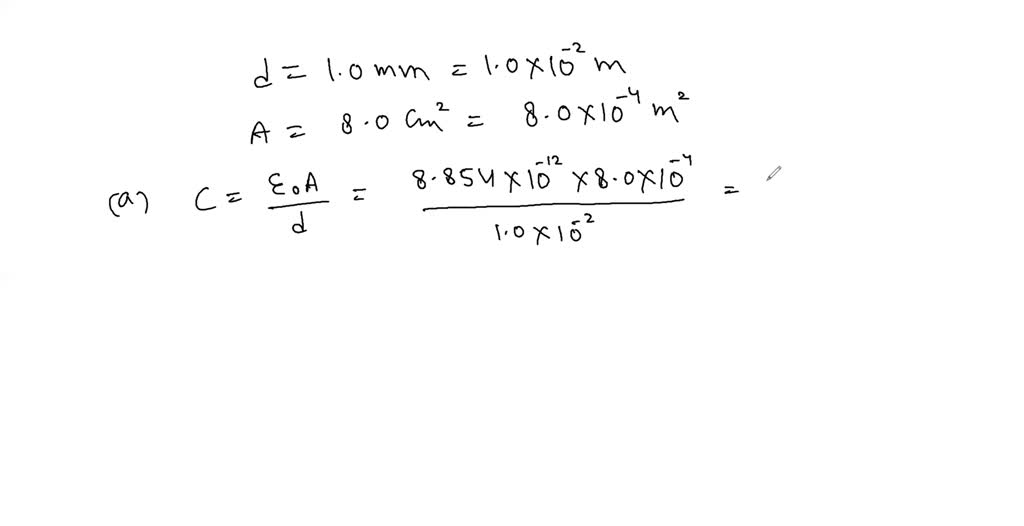 d = 1.0 mm = 1.0 × 10⁻² m
A = 8.0 cm² = 8.0 × 10⁻⁴ m²
(a) C = ε₀A / d = 8.854 × 10⁻¹² × 8.0 × 10⁻⁴ / 1.0 × 10⁻² =